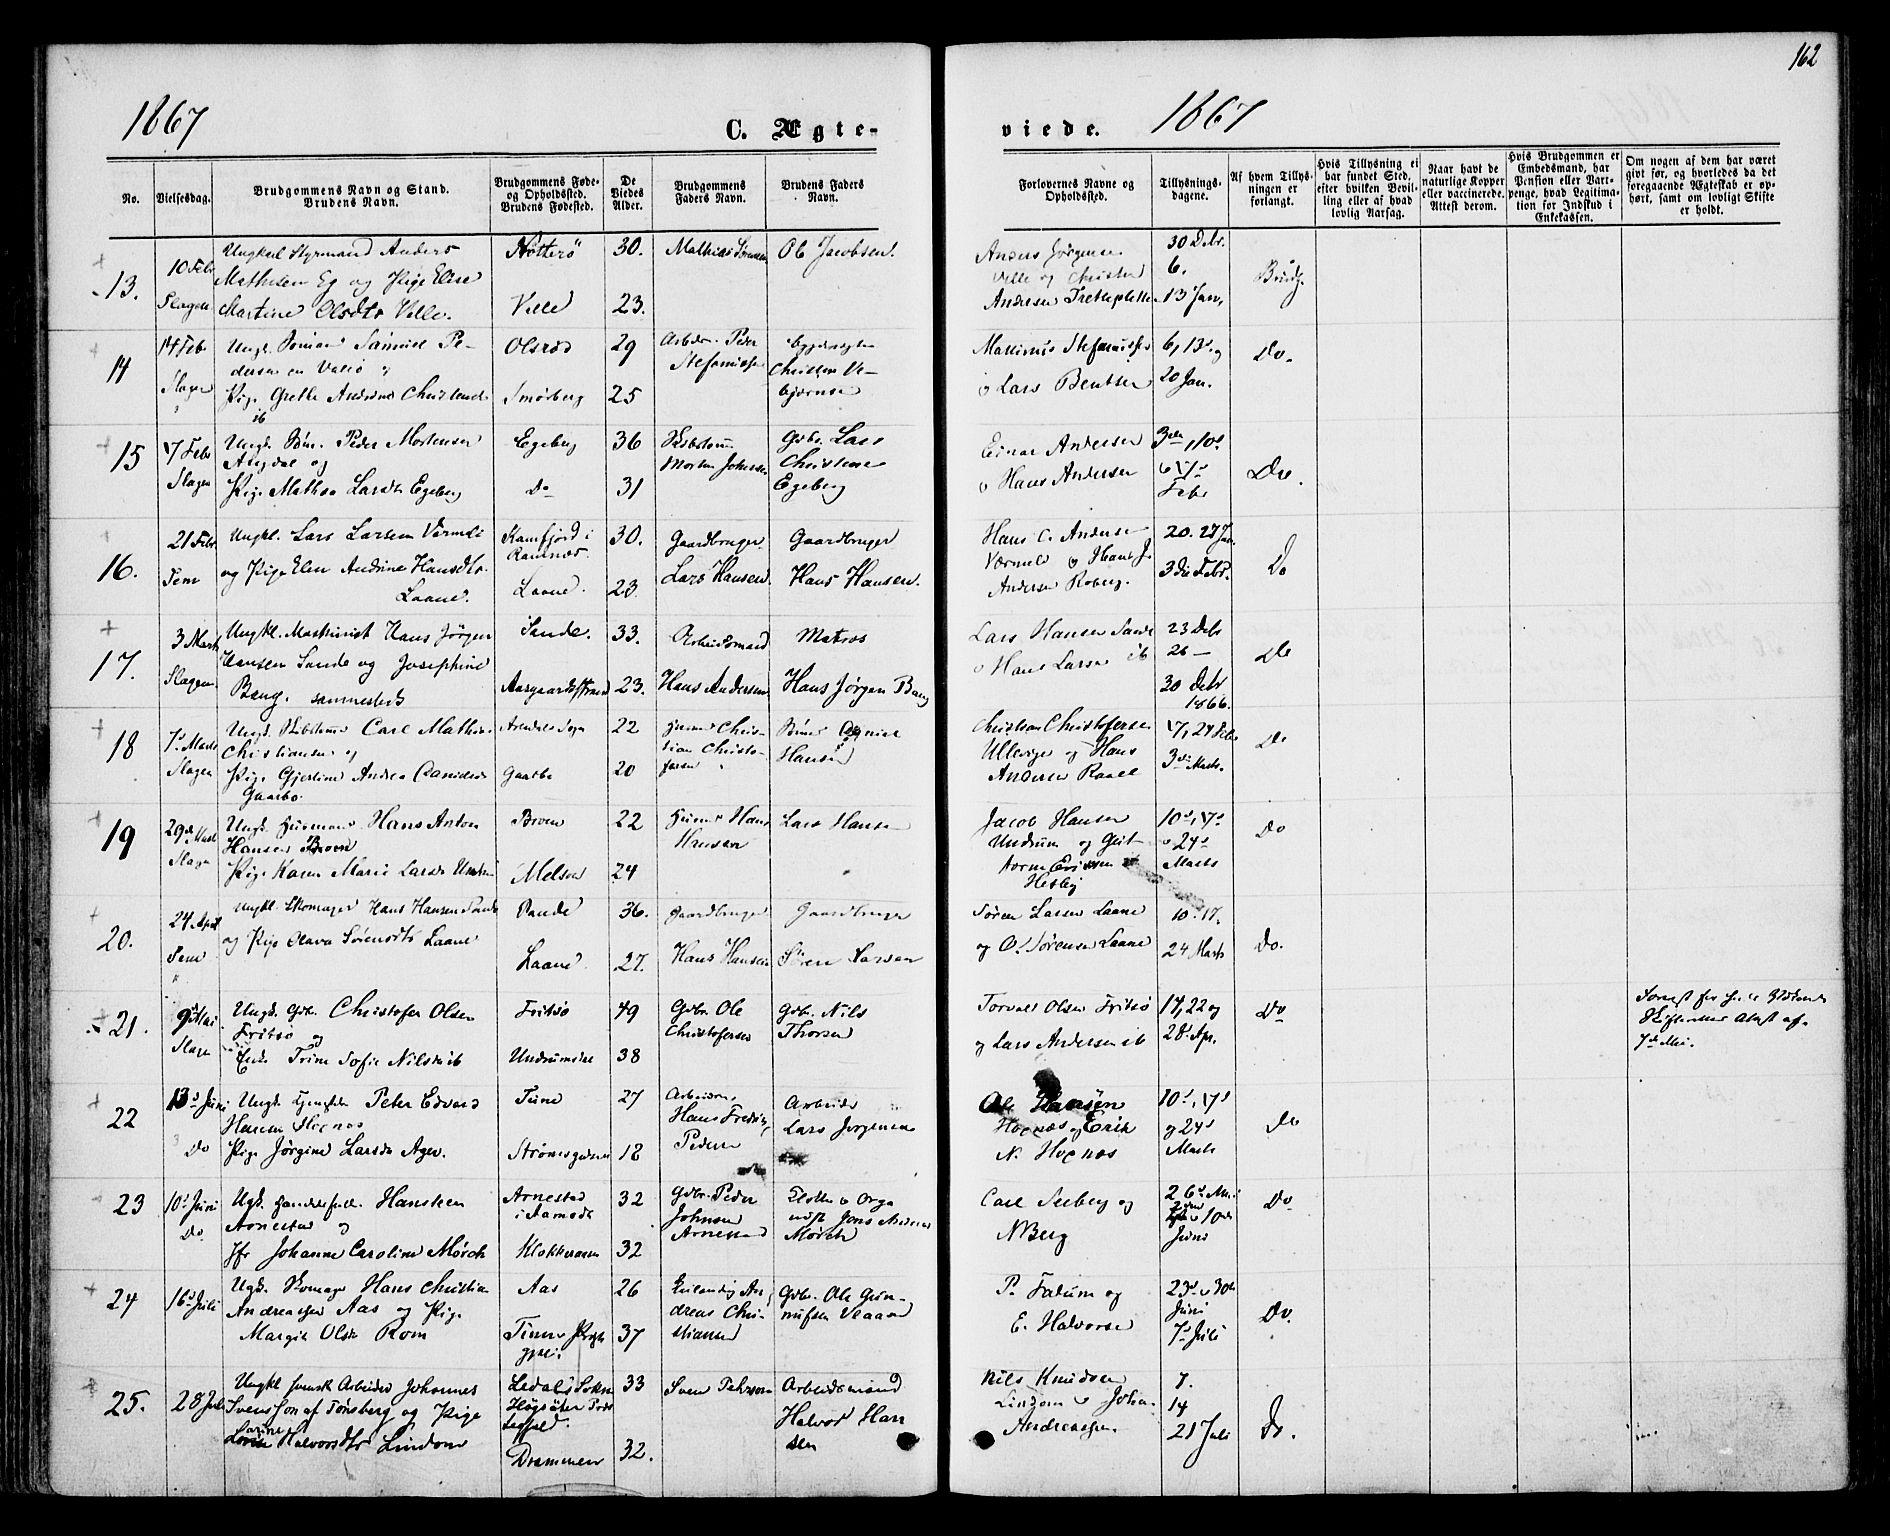 162
1867
C. Ægte-
viede.
1867
No.
Vielsesdag.
Brudgommens Navn og Stand.
Brudens Navn.
Brudgommens Føde-
og Opholdssted.
Brudens Fødested.
De
Viedes
Alder.
Brudgommens
Faders Navn.
Brudens Faders
Navn.
Forlovernes Navne og
Opholdssted.
Tillysnings-
dagene.
Af hvem Tillys-
ningen er
forlangt.
Hvis Tillysning ei
har fundet Sted,
efter hvilken Bevil-
ling eller af hvad
lovlig Aarsag.
Naar havt de
naturlige Kopper
eller vaccinerede.
Attest derom.
Hvis Brudgommen er
Embedsmand, har
Pension eller Vart-
penge, hvad Legitima-
tion for Indskud i
Enkekassen.
Om nogen af dem har været
givt før, og hvorledes da det
foregaaende Ægteskab er op-
hørt, samt om lovligt Skifte
er holdt.
13.
10 Febr
Slagen
Ungkarl Styrmand Anders
Mathisen Eg og Pige Elise
Martine Olsdtr Velle.
Nøtterø
Velle
30.
23.
Mathias Sørensen
Ole Jacobsen.
Anders Jørgensen
Velle og Christen
Andersen Tretteplette
30 Debr.
6.
13 Jan.
Brudg.
14
14 Febr
Slagen
Ungk. Samuel Pe-
dersen
Pige Grethe Andrine Christensd
ib
Olsrød
Smørberg
29
25
Arbdsm. Peder
Stefanussen
Christen Ve-
bjørnsen
Mathinus Stefanussen
o Lars Bentsen
6, 13de og
20 Jan.
Do.
15
17 Febr
Slagen
Ungk. Peder Mortensen
og
Pige Mathea Larsdtr Egeberg
Egeberg
Do
36
31
Morten Johnsen
Gbr. Lars
Christensen
Egeberg
Einar Andersen
o Hans Andersen
3die, 10de
o 17de
Febr
Do.
16.
21 Febr.
Sem
Ungkl. Lars Larsen Vermeli
og Pige Elen Andrine Hansdtr.
Laane.
Kamfjord i
Ramnæs.
Laane.
30.
23.
Gaardbruger.
Lars Hansen.
Gaardbruger
Hans Hansen.
Hans C. Andersen
Værmeli o Hans J.
Andersen Roberg.
20. 27 Jan.
3die Febr.
Do
17.
3 Marts
Slagen
Ungkl. Maskinist Hans Jørgen
Hansen Sande og Josephine
Bang. sammesteds
Sande.
Aasgaardsstrand
33.
23.
Arbeidsmand
Hans Andersen
Matros
Hans Jørgen Bang
Lars Hansen Sande
o Hans Larsen ib
23 Debr
26 —
30 Debr
1866.
Do
18
7de Marts
Slagen
Ungk. Carl Mathias
Christiansen og
Pige Gjertine Andrea
Gaarbo
Arendals Sogn
Gaarbo
22
20
Chris-
tian Christo-
fersen
Hansen
Christian Christofersen
Ullevige og Hans
Andersen Raael
17, 24 Febr
3die Marts.
Do
19
29de Marts
Slagen
Ungk. Husmand Hans Anton
Hansen Broen
Pige Karen Marie Larsdr
Broen
Melsom
22
24
Husmd Hans
Hansen
Lars Hansen
Jacob Hansen
Undrum og Gut-
torm Eriksen
Hesby
10de, 17de
o 24de
Marts
Do
20.
24 April
Sem
Ungkl. Skomager Hans Hansen Sande
og Pige Olava Sørensdtr Laane
Sande
Laane
36.
27.
Gaardbruger
Hans Hansen
Gaardbruger
Søren Larsen
Søren Larsen Laane
og O. Sørensen Laane
10. 17.
24 Marts
Do.
21.
9de Mai
Slagen
Ungk. Gbr. Christofer Olsen
Fritsø
og
Enke Trine Sofie Nilsd ib
Fritsø
49
38
Gbr. Ole
Christofersen
Gbr. Nils
Thorsen
Torvald Olsen Fritsø
og Lars Andersen ib
14, 22 og
28 Apr.
Do
Skifteretten Attest af
7de Mai.
22
13de Juni
Do
Ungk. Peter Edvard
Hansen Hognæs
Pige Jørgine Larsdr Ager.
Tune
27
18
Arbeidsm.
Hans Fredrik
Pedersen
Arbeider
Lars Jørgensen
Ole Hansen
Hognæs og Erik
N. Hognæs
10de, 17de
og 24de
Marts
Do
23
10de Juni
Do.
Ungk. Hansteen
Arnestad og
Jfr Johanne Caroline Mørch
Arnestad
Klokkeraasen
32
32
Gbr. Peder
Johnsen
Arnestad
Klokker o Orga
nist Jens
Mørch
Carl Seeberg og
N Berg
26de Mai
2den
o 10de
Juni
Do
24
16de Juli
Ungk. Skomager Hans Christian
Andreassen Aas og Pige
Margit Olsdr Rom
Aas
26
37
An-
dreas Chri-
stiansen
Gbr. Ole Gun-
nufsen
P. Fadum og
E. Halvorsen
23de o 30te
Juni
7de Juli
Do.
25.
28 Juli
Ungkl svensk Arbeider Johannes
Svensson af Tønsberg og Pige
Karine
Halvorsdtr Lindom
Ledals Sokn
Høgsäter
Drammen
33
32.
Sven Pehrson
Arbeidsmand
Halvor Han
sen
Nils Knudsen
Lindom o Johan
Andreassen.
7.
14
21 Juli
Do.